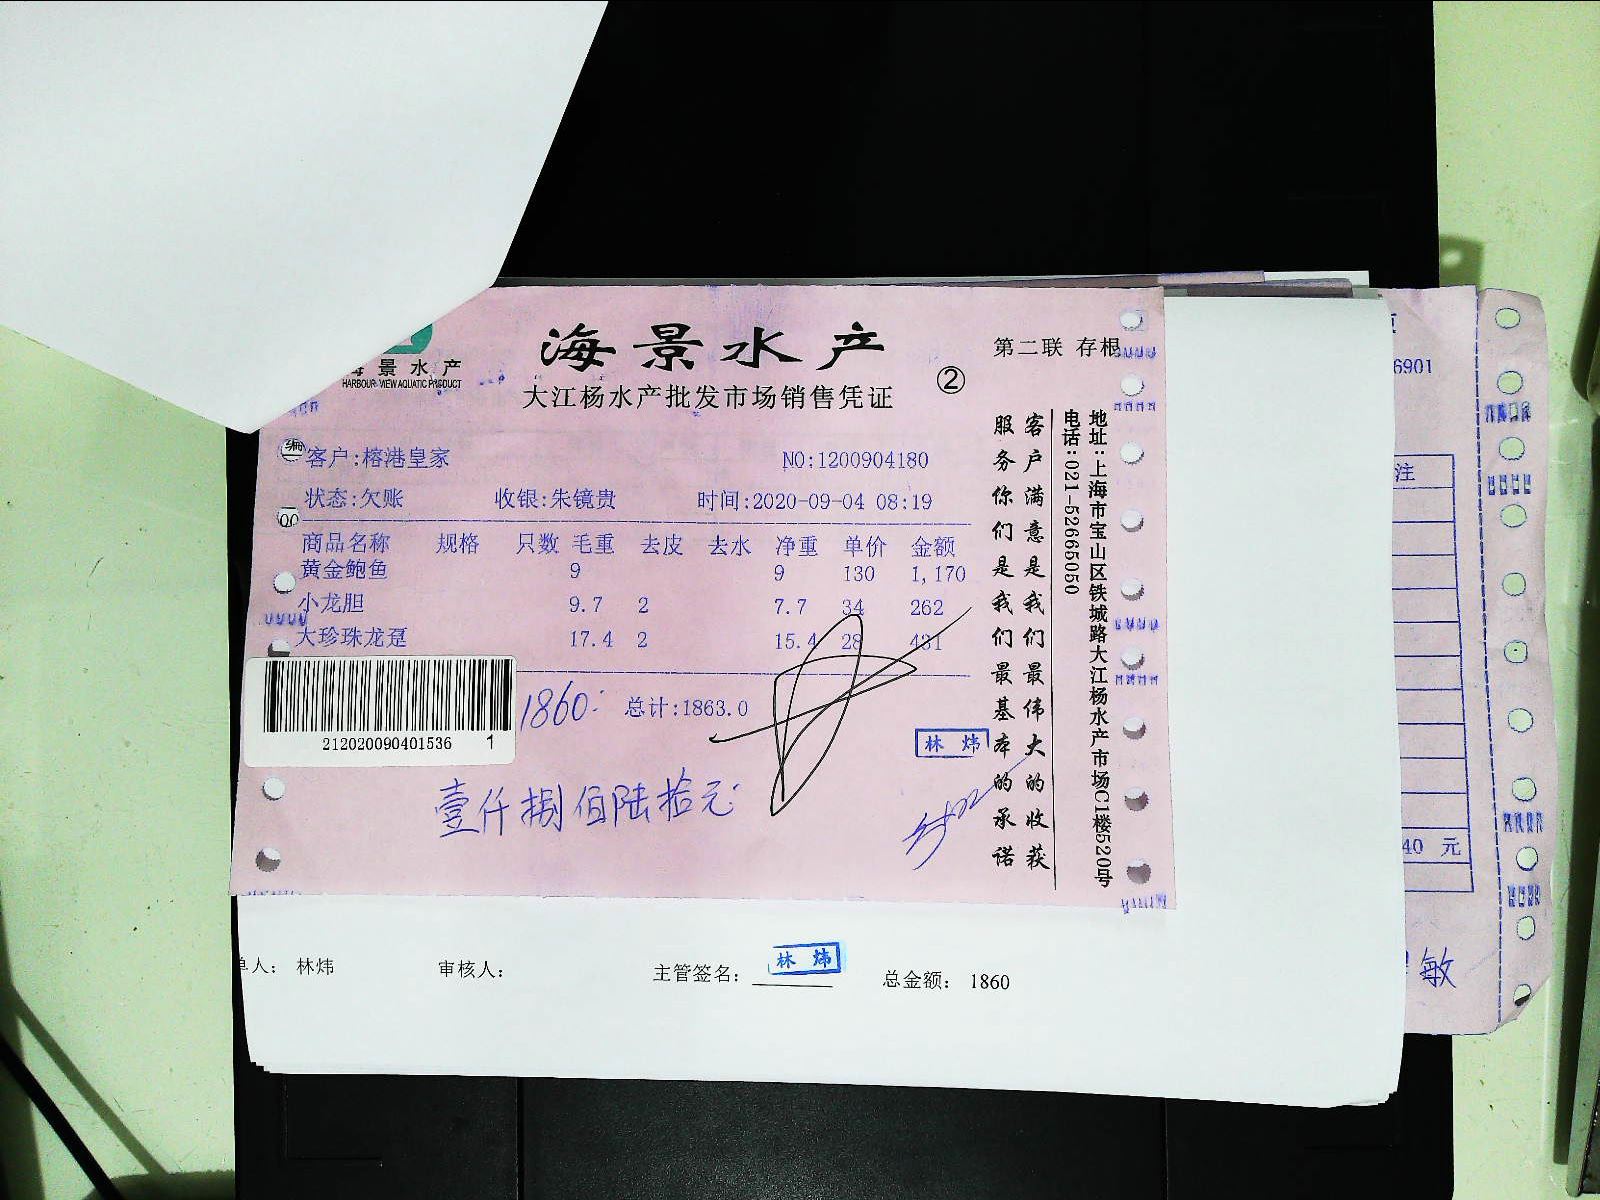 景水产
HARBOUR VIEW AQUATIC PRODUCT
海景水产
大江杨水产批发市场销售凭证
②
第二联 存根
客户:榕港皇家 NO:1200904180
状态:欠账 收银:朱镜贵 时间:2020-09-04 08:19
商品名称 规格 只数 毛重 去皮 去水 净重 单价 金额
黄金鲍鱼 9 9 130 1,170
小龙胆 9.7 2 7.7 34 262
大珍珠龙趸 17.4 2 15.4 28 431
1860.- 总计:1863.0
212020090401536 1
林炜
壹仟捌佰陆拾元
客户满意是我们最伟大的收获
服务你们是我们最基本的承诺
地址:上海市宝山区铁城路大江杨水产市场C1楼520号
电话:021-52665050
单人: 林炜 审核人: 主管签名: 林炜 总金额: 1860
6901
注
40 元
敏